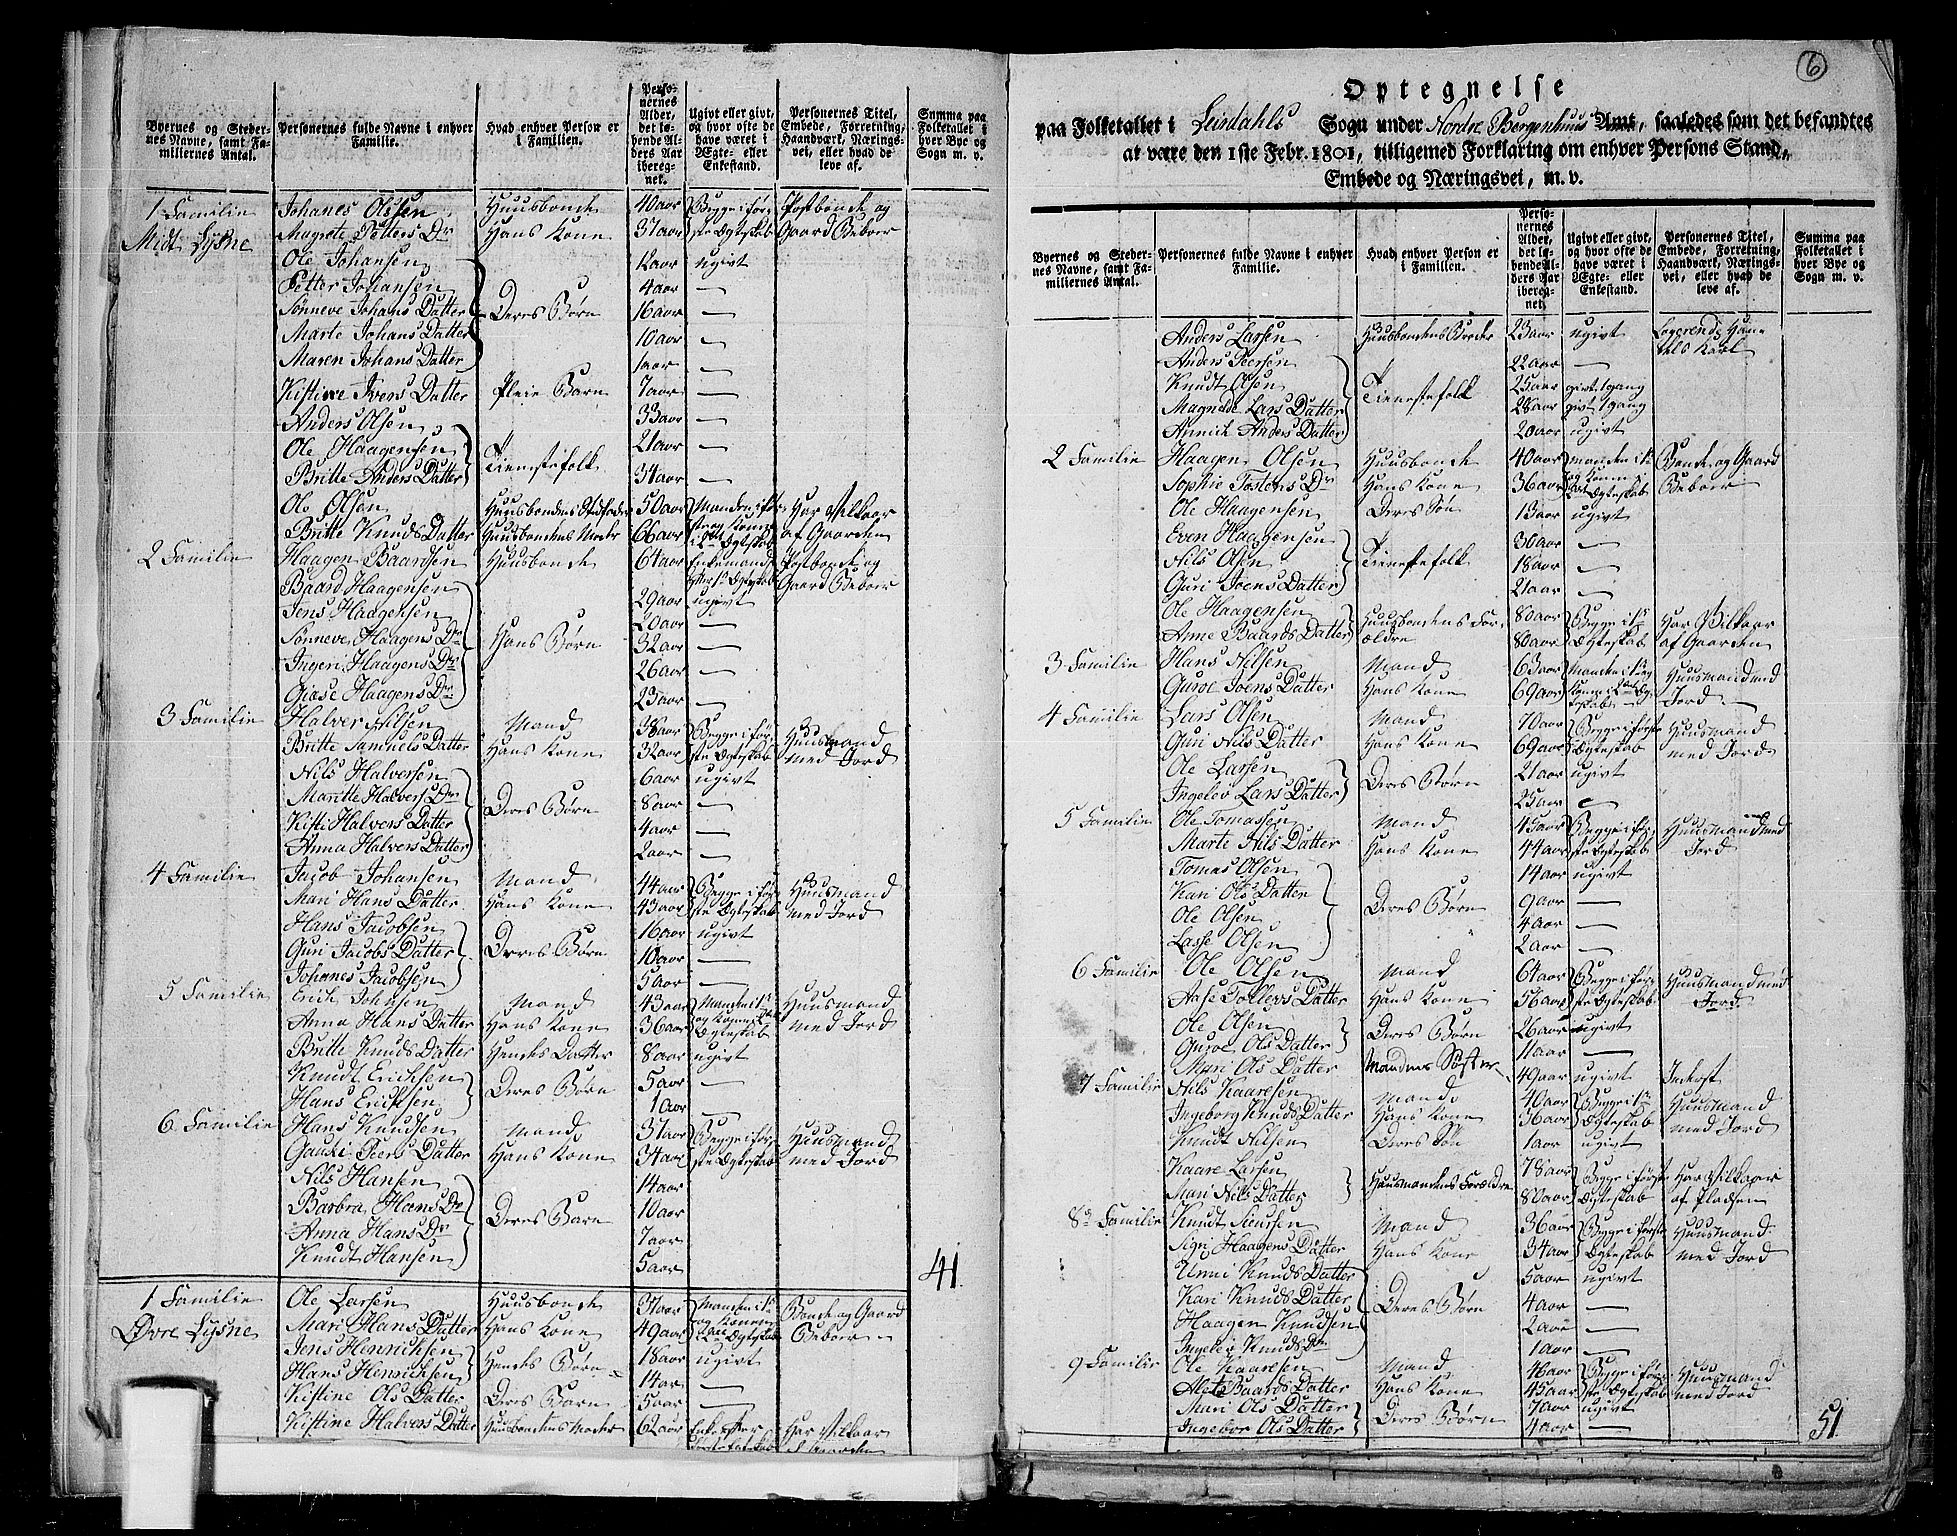 Byernes og Stedernes Navne, samt Familiernes Antal. | Personernes fulde Navne i enhver Familie. | Hvad enhver Person er i Familien. | Personernes Alder, det løbende Alders Aar iberegnet. | Ugivt eller givt, og hvor ofte de have været i Ægte- eller Enkestand. | Personernes Titel, Embede, Forretning, Haandværk, Næringsvei, eller hvad de leve af. | Summa paa Folketallet i hver Bye og Sogn m. v.
1 Familie Johanes Olssen Huusbonde 40 aar Begge i før- Postbonde og
Midt Lysne Magrete Petters Dr Hans Kone 37 aar ste Ægteskab Gaard Beboer
Ole Johansen 12 aar ugivt
Petter Johansen 4 aar —
Sønneve Johans Datter Deres Børn 16 aar —
Marte Johans Datter 10 aar —
Maren Johans Datter 1 aar —
Kistine Ivers Datter Pleie Barn 7 aar —
Anders Olsen 33 aar —
Ole Haagensen Tienestefolk 21 aar —
Britte Anders Datter 34 aar —
Ole Olsen Huusbondens Stedfader 50 aar Manden i før- Har Vilkaar
Britte Knuds Datter Huusbondens Moder 66 aar ste og Konen i 2det Ægteskab af Gaarden
2 Familie Haagen Baardsen Huusbonde 64 aar Enkemand Postbonde og
Gaard Beboer
Baard Haagensen 29 aar ugivt
Jens Haagensen 20 aar —
Sønneve Haagens Dr Hans Børn 32 aar —
Ingeri Haagens Dr 26 aar —
Giøse Haagens Dr 23 aar —
3 Familie Halver Nilsen Mand 38 aar Begge i før- Huusmand
Britte Samuels Datter Hans Kone 32 aar ste Ægteskab med Jord
Nils Halversen 6 aar ugivt
Maritte Halvers Dr Deres Børn 8 aar —
Kisti Halvers Datter 4 aar —
Anna Halvers Datter 2 aar —
4 Familie Jacob Johansen Mand 44 aar Begge i før- Huusmand
Mari Hans Datter Hans Kone 43 aar ste Ægteskab med Jord
Hans Jacobsen 16 aar ugivt
Guri Jacobs Datter Deres Børn 10 aar —
Johanes Jacobsen 5 aar —
5 Familie Erich Johnsen Mand 43 aar Manden i 1ste Huusmand
Anna Hans Datter Hans Kone 36 aar og Konen i 2det Ægteskab med Jord
Britte Knuds Datter Hendes Datter 8 aar ugivt
Knudt Erichsen Deres Børn 5 aar —
Hans Erichsen 1 aar —
6 Familie Hans Knudsen Mand 37 aar Begge i før- Huusmand
Peers Datter Hans Kone 34 aar ste Ægteskab med Jord
Nils Hansen 14 aar
Barbra Hans Dr Deres Børn 10 aar
Anna Hans Dr 7 aar
Knudt Hansen 5 aar 41
1 Familie Ole Larsen Huusbonde 37 aar Manden i 1ste Bonde og Gaard
Øvre Lysne Mari Hans Datter Hans Kone 49 aar og Konen i 2det Ægteskab Beboer
Jens Henrichsen Hendes Børn 18 aar ugivt
Hans Henrichsen 14 aar —
Kistine Ols Datter Deres Barn 5 aar —
Kistine Halvers Datter Huusbondens Moder 62 aar Enke efter Har Vilkaar
af Gaarden
6
Optegnelse
paa Folketallet i Leirdahls Sogn under Nordre Bergenhuus Amt, saaledes som det befandtes
at være den 1ste Febr. 1801, tilligemed Forklaring om enhver Persons Stand,
Embede og Næringsvei, m. v.
Byernes og Stedernes Navne, samt Familiernes Antal. | Personernes fulde Navne i enhver Familie. | Hvad enhver Person er i Familien. | Personernes Alder, det løbende Alders Aar iberegnet. | Ugivt eller givt, og hvor ofte de have været i Ægte- eller Enkestand. | Personernes Titel, Embede, Forretning, Haandværk, Næringsvei, eller hvad de leve af. | Summa paa Folketallet i hver Bye og Sogn m. v.
Anders Larsen Huusbondens Broder 23 aar ugivt Logerende Han-
dels Karl
Anders Peersen 22 aar —
Knudt Olsen Tienestefolk 25 aar givt 1 gang
Magnilde Lars Datter 28 aar givt 1 gang
Annich Anders Datter 20 aar ugivt
2 Familie Haagen Olsen Huusbonde 40 aar Manden i 1ste Bonde og Gaard
Sophie Tostens Dr Hans Kone 36 aar og Konen i 2det Ægteskab Beboer
Ole Haagensen Deres Søn 13 aar ugivt
Even Haagensen 30 aar —
Nils Olsen Tienestefolk 18 aar —
Guri Joens Datter 21 aar —
Ole Haagensen Huusbondens For- 80 aar Begge i 1ste Har Vilkaar
Anne Baards Datter ældre 80 aar Ægteskab af Gaarden
3 Familie Hans Nilsen Mand 63 aar Manden i 1ste og Huusmand med
Guroe Joens Datter Hans Kone 69 aar Konen i 2det Ægteskab Jord
4 Familie Lars Olsen Mand 70 aar Begge i første Huusmand
Guri Nils Datter Hans Kone 69 aar Ægteskab med Jord
Ole Larsen Deres Børn 21 aar ugivt
Ingelev Lars Datter 25 aar —
5 Familie Ole Tomassen Mand 45 aar Begge i før- Huusmand med
Marte Nils Datter Hans Kone 44 aar ste Ægteskab Jord
Tomas Olsen 14 aar ugivt
Kari Ols Datter Deres Børn 9 aar —
Ole Olsen 4 aar —
Lasse Olsen 2 aar —
6 Familie Ole Olsen Mand 64 aar Begge i før- Huusmand med
Aase Tollevs Datter Hans Kone 56 aar ste Ægteskab Jord
Ole Olsen Deres Børn 26 aar ugivt
Guroe Ols Datter 11 aar —
Mari Ols Datter Mandens Søster 49 aar ugivt Inderst
7 Familie Nils Kaaresen Mand 40 aar Begge i 1ste Huusmand
Ingeborg Knuds Datter Hans Kone 36 aar Ægteskab med Jord
Knudt Nilsen Deres Søn 1 aar ugivt
Kaare Larsen Huusmandens Forældre 78 aar Begge i første Har Vilkaar
Mari Nils Datter 80 aar Ægteskab af Pladsen
8de Familie Knudt Siursen Mand 36 aar Begge i første Huusmand
Sigri Haagens Datter Hans Kone 34 aar Ægteskab med Jord
Unni Knuds Datter 5 aar ugivt
Kari Knuds Datter Deres Børn 4 aar —
Haagen Knudsen 2 aar —
Ingelev Knuds Dr 1 aar —
9 Familie Ole Kaaresen Mand 46 aar Begge i før- Huusmand
Alet Baards Datter Hans Kone 45 aar ste Ægteskab med Jord
Mari Ols Datter Deres Børn 7 aar ugivt
Ingebor Ols Datter 4 aar — 51